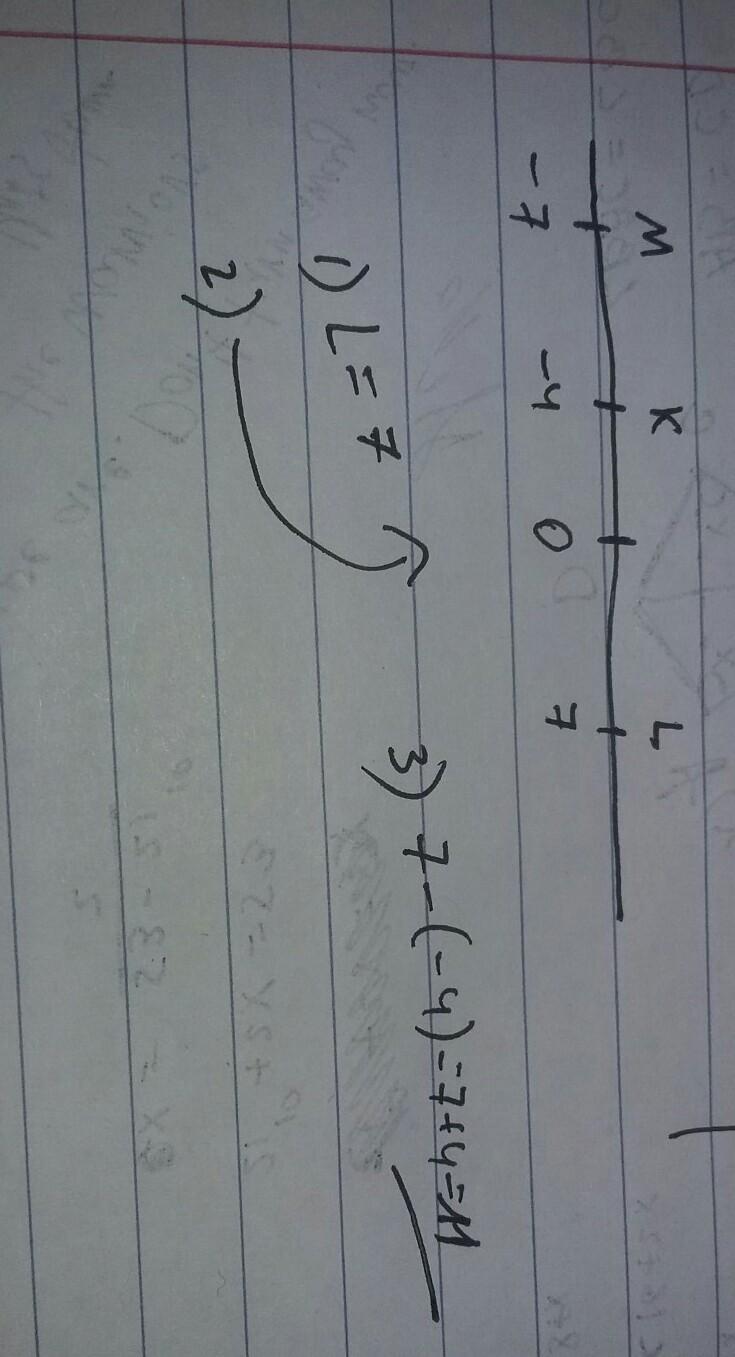 M K L
-7 -4 0 7
1) L = 7
2)
3) 7-(-4)=7+4=11